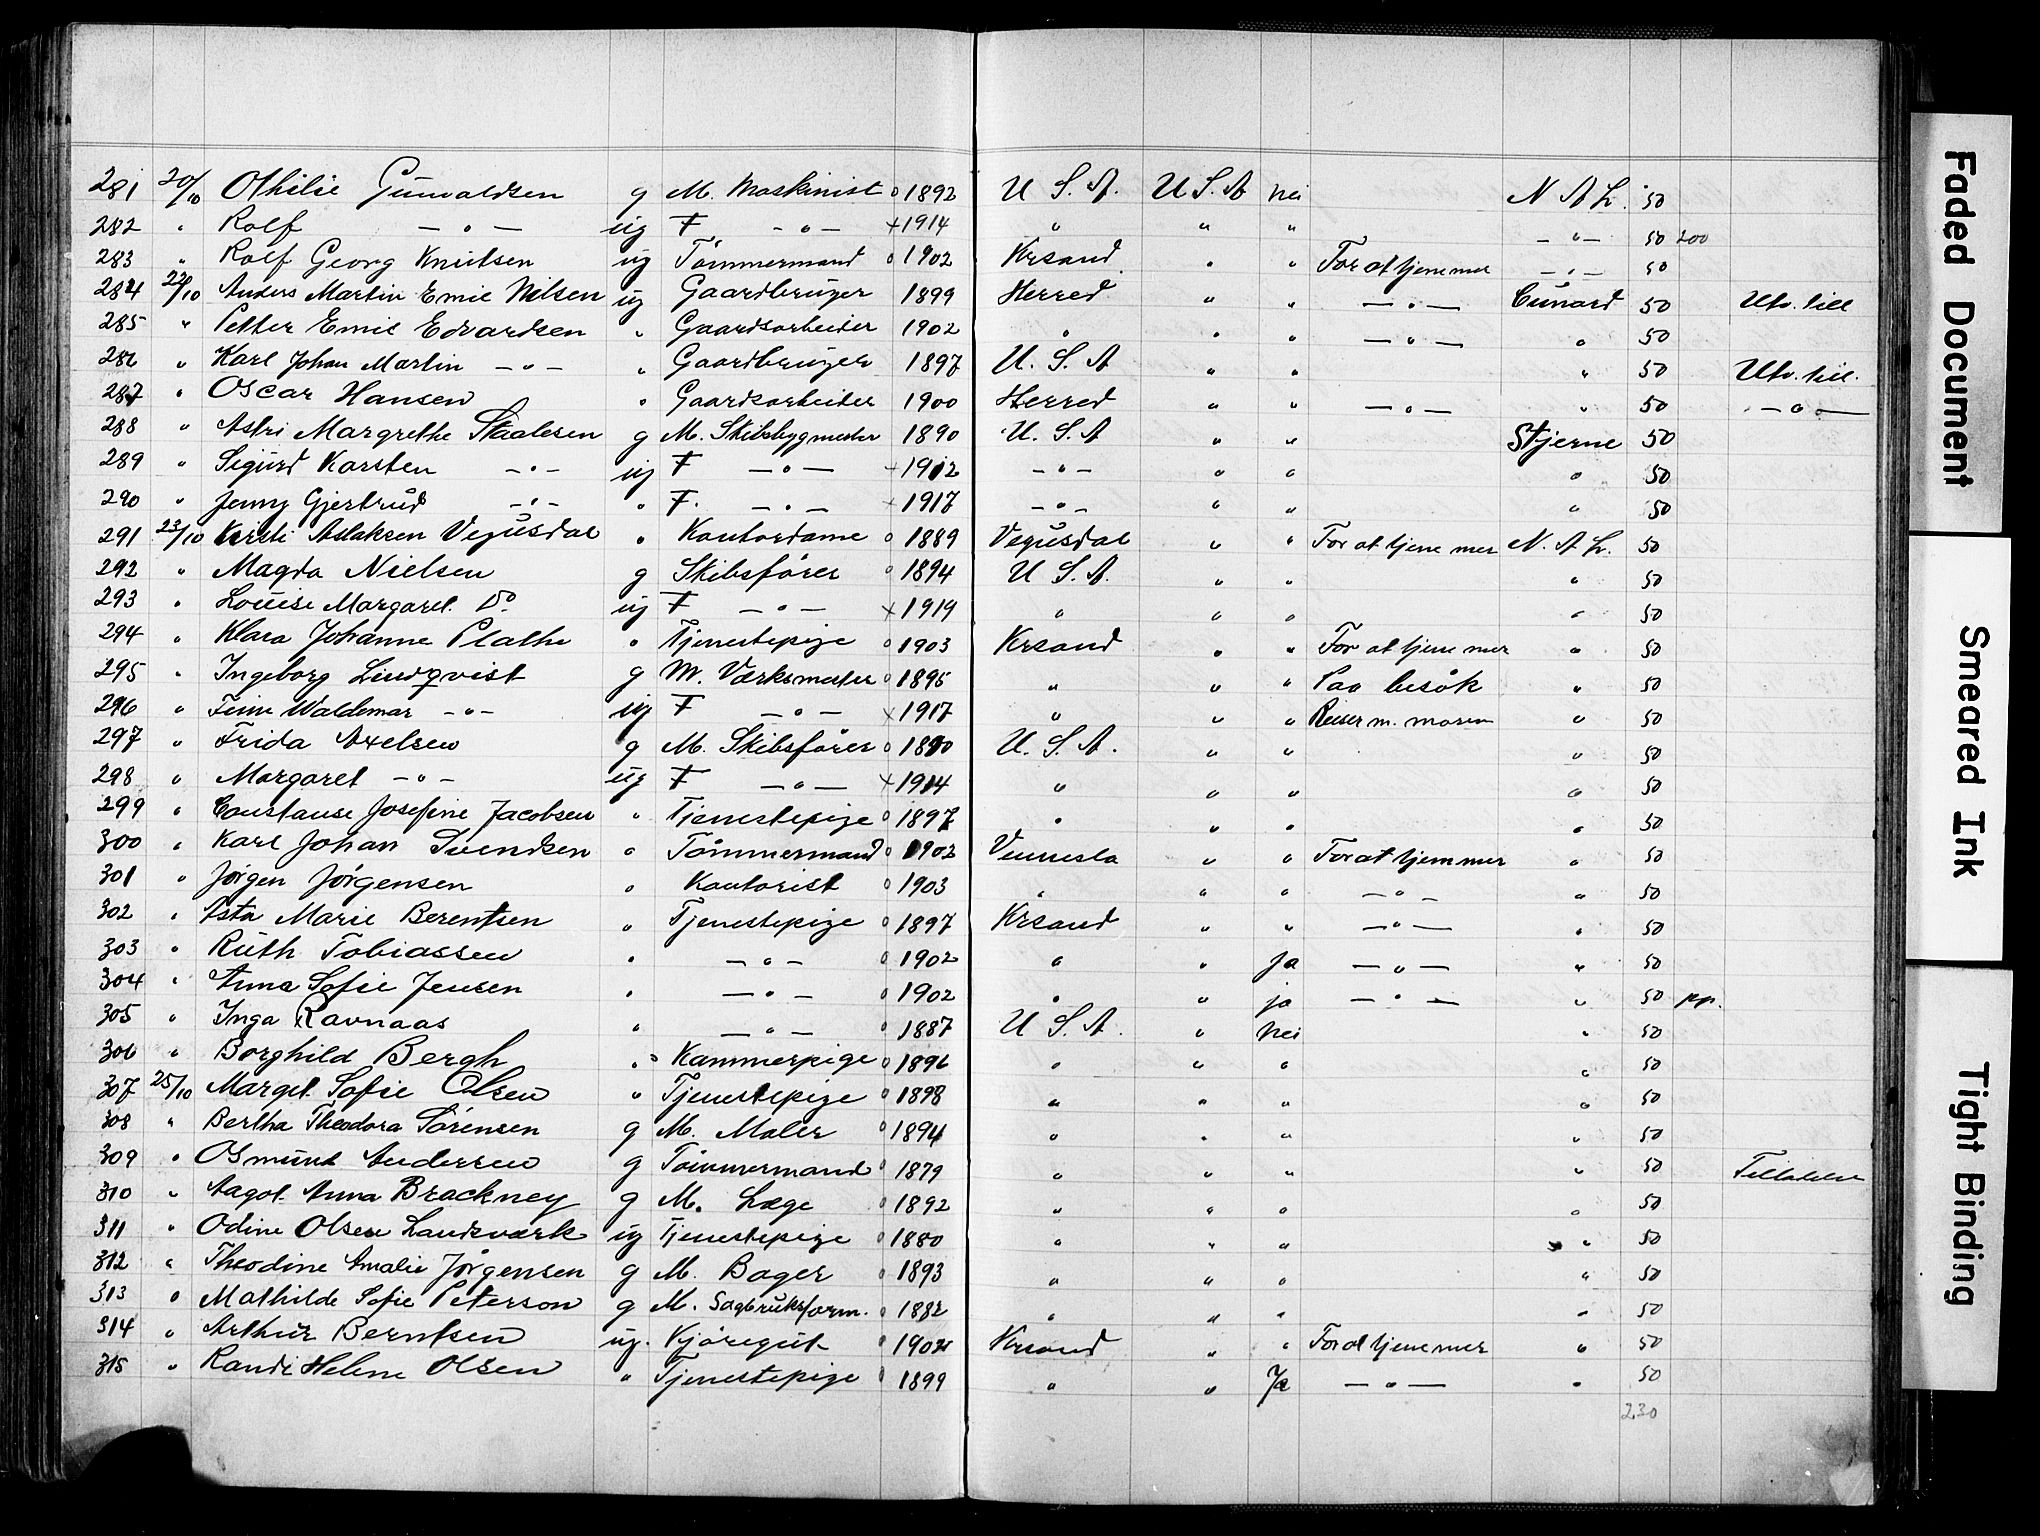 281 20/10 Othilie Gunvaldsen g M. Maskinist o 1892 U. S. A. U S A nei N A L. 50
282 " Rolf — " — ug F — " — + 1914 " " " — " — 50 200
283 " Rolf Georg Knutsen ug Tömmermand o 1902 Krsand " " For at tjene mer — " — 50
284 22/10 Anders Martin Emil Nilsen ug Gaardbruger 1899 Herred " " — " — Cunard 50 Utv. till
285 " Petter Emil Edvardsen " Gaardsarbeider 1902 " " " — " — " 50
286 " Karl Johan Martin — " — " Gaardbruger 1897 U. S. A " " " 50 Utv. till.
287 " Oscar Hansen " Gaardsarbeider 1900 Herred " " — " — " 50 — " —
288 " Astri Margrethe Staalesen g M. Skibsbygmester 1890 U. S. A " " Stjerne 50
289 " Sigurd Karsten — " — ug F — " — + 1912 — " — " " " 50
290 " Jenny Gjertrud — " — " F. — " — + 1917 — " — " " " 50
291 23/10 Kirsti Aslaksen Vegusdal " Kontordame o 1889 Vegusdal " " For at tjene mer N. A L. 50
292 " Magda Nielsen g Skibsförer o 1894 U S. A. " " " 50
293 " Louise Margaret Do ug F — " — + 1919 " " " " 50
294 " Klara Johanne Plathe " Tjenestepige o 1903 Krsand " " For at tjene mer " 50
295 " Ingeborg Lindqvist g M. Værksmester o 1895 " " " Paa besök " 50
296 " Waldemar — " — ug F — " — + 1917 " " " Reiser m. moren " 50
297 " Frida Axelsen g M. Skibsförer o 1880 U. S. A. " " " 50
298 " Margaret — " — ug F — " — + 1914 " " " " 50
299 " Constanse Josefine Jacobsen " Tjenestepige o 1897 " " " " 50
300 " Karl Johan Svendsen " Tömmermand o 1902 Vennesla " " For at tjene mer " 50
301 " Jörgen Jörgensen " Kontorist o 1903 " " " — " — " 50
302 " Asta Marie Berentsen " Tjenestepige o 1897 Krsand " " — " — " 50
303 " Ruth Tobiassen " — " — o 1902 " " Ja — " — " 50
304 " Anna Sofie Jensen " — " — o 1902 " " ja — " — " 50 pp.
305 " Inga Ravnaas " — " — o 1887 U S. A. " nei " 50
306 " Borghild Bergh " Kammerpige o 1896 " " " " 50
307 25/10 Margit Sofie Olsen " Tjenestepige o 1898 " " " " 50
308 " Bertha Theodora Sörensen g M. Maler o 1894 " " " " 50
309 " Osmund Andersen g Tömmermand o 1879 " " " " 50 Tilladelse
310 " Aagot Anna Brackney g M. Læge o 1892 " " " " 50
311 " Odine Olsen Landsværk ug Tjenestepige o 1880 " " " " 50
312 " Theodine Amalie Jörgensen g M. Bager o 1893 " " " " 50
313 " Mathilde Sofie Peterson g M. Sagbruksform. o 1882 " " " " 50
314 " Arthur Berntsen ug. Kjöregut o 1902 Krsand " " For at tjene mer " 50
315 " Randi Helene Olsen " Tjenestepige o 1899 " " Ja — " — " 50
230
Faded Document
Smeared Ink
Tight Binding